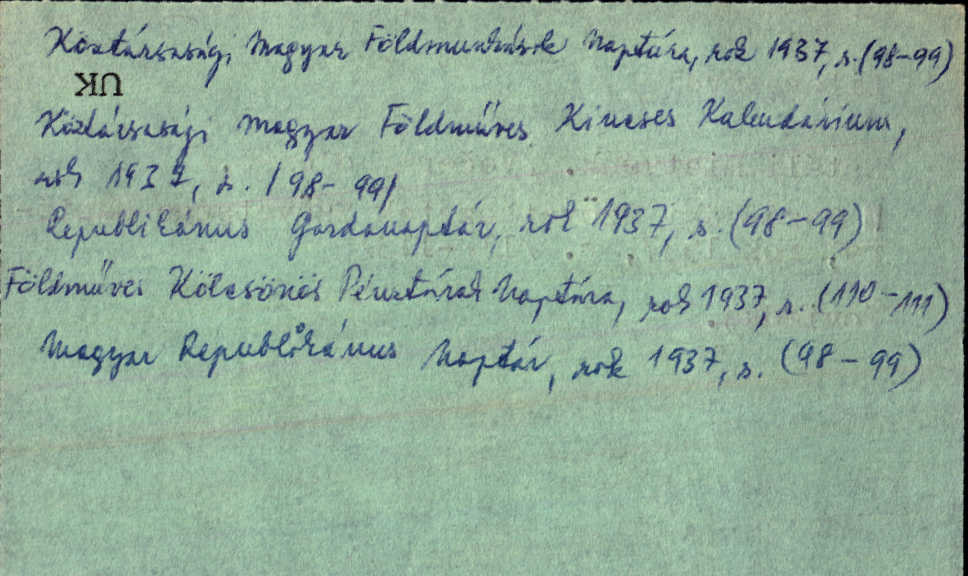 Köztársasági Magyar Földmunkások Naptára, rok 1937, s. (98-99)
UK
Köztársasági Magyar Földműves Kincses Kalendárium,
rok 1937, s. /98-99/
Republikánus Gazdanaptár, rok 1937, s. (98-99)
Földműves Kölcsönös Pénztárak Naptára, rok 1937, s. (110-111)
Magyar Republikánus Naptár, rok 1937, s. (98-99)